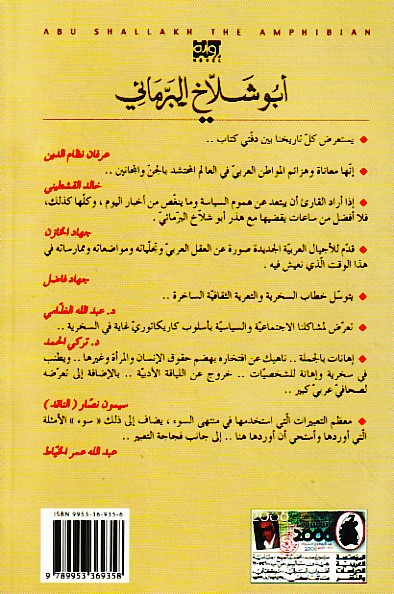 ABU SHALLAKH THE AMPHIBIAN
رواية
NOVEL
أبو شلاخ البرّمائي
◆ يستعرض كلّ تاريخنا بين دفّتي كتاب ..
عرفان نظام الدين
◆ إنّها معاناة وهزائم المواطن العربيّ في العالم المحتشد بالجنّ والمجانين ..
خالد القشطيني
◆ إذا أراد القارئ أن يبتعد عن هموم السياسة وما ينغّص من أخبار اليوم ، وكلّها كذلك،
فلا أفضل من ساعات يقضيها مع هذر أبو شلاخ البرّمائيّ .
جهاد الخازن
◆ قدّم للأجيال العربيّة الجديدة صورة عن العقل العربيّ وتجلّياته ومواضعاته وممارساته في
هذا الوقت الّذي نعيش فيه .
جهاد فاضل
◆ يتوسّل خطاب السخرية والتعرية الثقافيّة الساخرة ..
د. عبد الله الغذّامي
◆ تعرّض لمشاكلنا الاجتماعيّة والسياسيّة بأسلوب كاريكاتوريّ غاية في السخرية ..
د. تركي الحمد
◆ إهانات بالجملة .. ناهيك عن افتخاره بهضم حقوق الإنسان والمرأة وغيرها .. ويطنب
في سخرية وإهانة للشخصيّات .. خروج عن اللياقة الأدبيّة .. بالإضافة إلى تعرّضه
لصحافيّ عربيّ كبير ..
سيمون نصّار ( الناقد )
◆ معظم التعبيرات الّتي استخدمها في منتهى السوء ، يضاف إلى ذلك « سوء » الأمثلة
الّتي أوردها وأستحي أن أوردها هنا .. إلى جانب فجاجة التعبير ..
عبد الله عمر الخيّاط
ISBN 9953-36-935-6
9 789953 369358
2006
2006
المؤسسة
العربية
للدراسات
والنشر